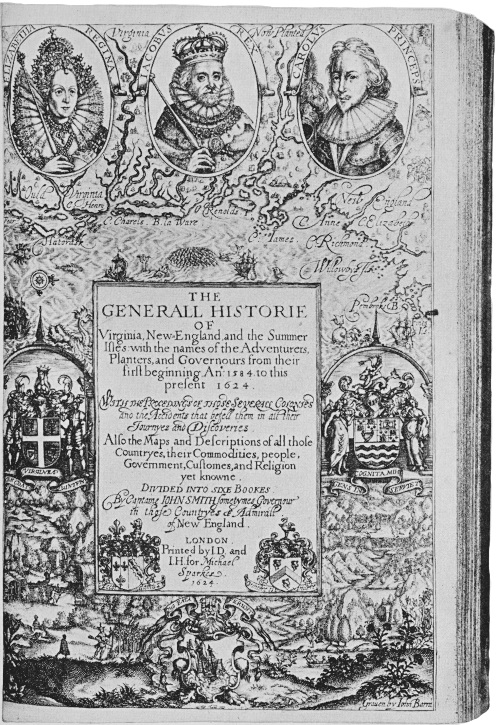 ELIZABETHA REGINA
IACOBVS REX
CAROLVS PRINCEPS
Virginia
Now Planted
Ould Virginia
C. Henry
C. Charels
B. la Ware
P. Renolds
C. James
New England
Anne
C. Elizabeth
C. Richmond
Willowby Iles
Pembrok B
Hatorask
THE
GENERALL HISTORIE
OF
Virginia, New-England, and the Summer
Isles: with the names of the Adventurers,
Planters, and Governours from their
first beginning Anº: 1584. to this
present 1624.
WITH THE PROCEDINGS OF THOSE SEVERALL COLONIES
and the Accidents that befell them in all their
Journyes and Discoveries.
Also the Maps and Descriptions of all those
Countryes, their Commodities, people,
Government, Customes, and Religion
yet knowne.
DIVIDED INTO SIXE BOOKES.
By Captaine IOHN SMITH sometymes Governour
in those Countryes & Admirall
of New England.
LONDON
Printed by I.D. and
I.H. for Michael
Sparkes.
1624.
VIRGINIA
COGNITA MIHI
GENS IN
SERVIET
Graven by Iohn Barra